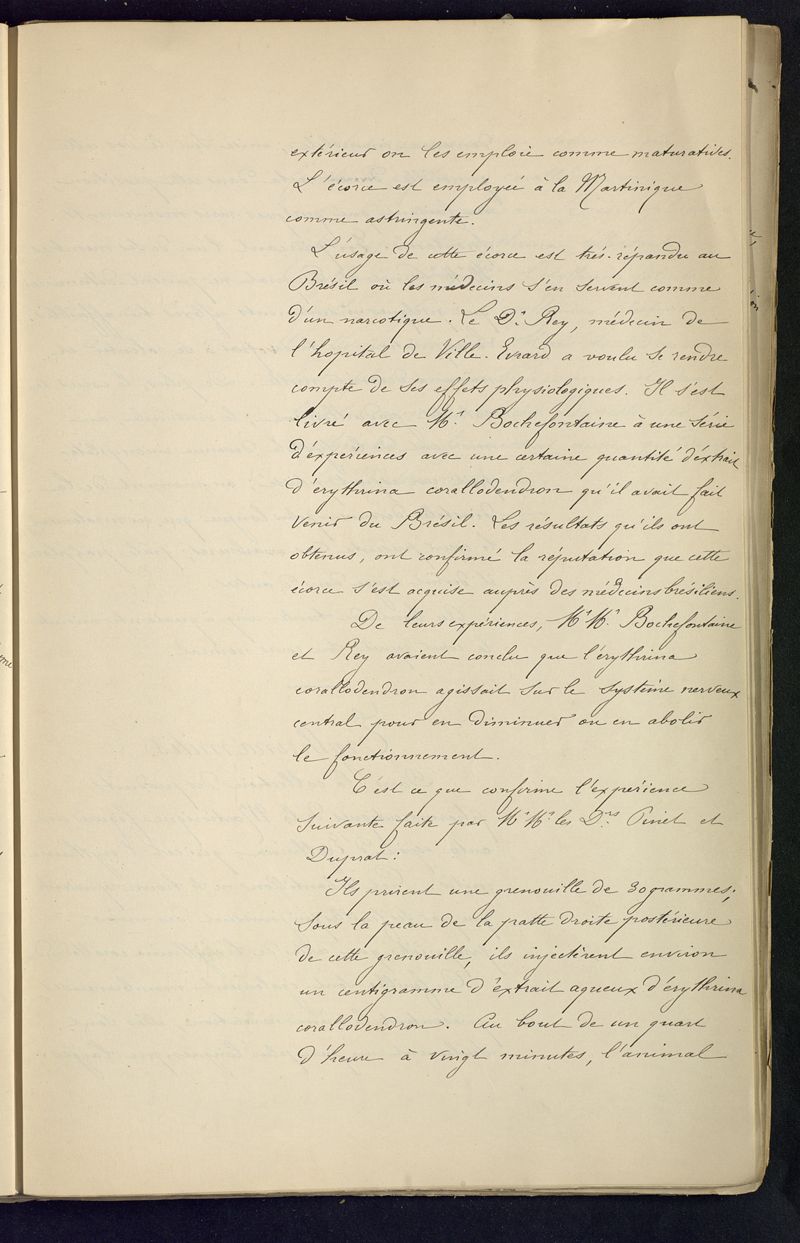 extérieur on les emploie comme maturatives.
L'écorce est employée à la Martinique
comme astringente.
L'usage de cette écorce est très-répandu au
Brésil où les médecins s'en servent comme
d'un narcotique. Le Dr. Rey, médecin de
l'hopital de Ville-Evrard a voulu se rendre
compte de ses effets physiologiques. Il s'est
livré avec Mr. Bochefontaine à une série
d'expériences avec une certaine quantité d'extrait
d'erythrina corallodendron qu'il avait fait
venir du Brésil. Les résultats qu'ils ont
obtenus, ont confirmé la réputation que cette
écorce s'est acquise auprès des médecins brésiliens.
De leurs expériences, Mr Mr. Bochefontaine
et Rey avaient conclu que l'erythrina
corallodendron agissait sur le système nerveux
central pour en diminuer ou en abolir
le fonctionnement.
C'est ce que confirme l'expérience
suivante faite par Mr Mr les Drs. Pinet et
Duprat:
Ils prirent une grenouille de 30 grammes;
sous la peau de la patte droite postérieure
de cette grenouille, ils injectèrent environ
un centigramme d'extrait aqueux d'érythrina
corallodendron. Au bout de un quart
d'heure à vingt minutes, l'animal